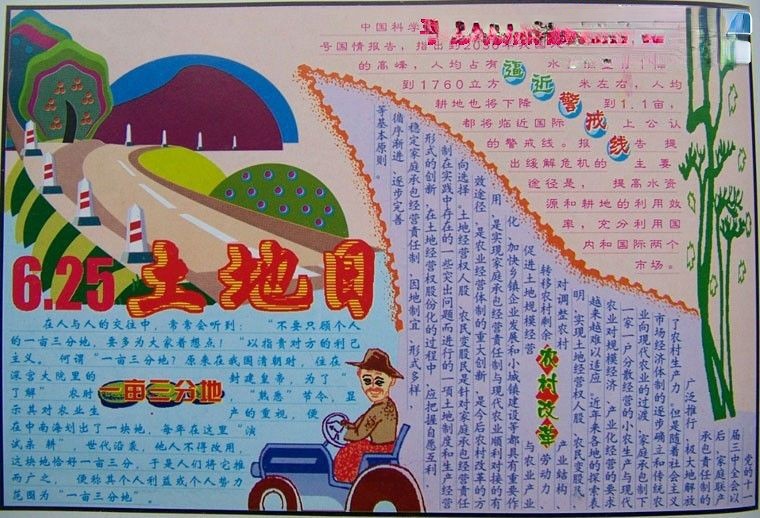 中国科学
号国情报告，指出到2030年
的高峰，人均占有 水
到1760立方 米左右，人均
耕地也将下降 到1.1亩，
都将临近国际 上公认
的警戒线。报 告提
出缓解危机的 主要
途径是， 提高水资
源和耕地的利用效
率，充分利用国
内和国际两个
市场。
逼近警戒线
6.25土地日
在人与人的交往中，常常会听到：“不要只顾个人
的一亩三分地，要多为大家着想点！”以指责对方的利己
主义。何谓“一亩三分地？原来在我国清朝时，住在
深宫大院里的 封建皇帝，为了“
了解” 农时 “熟悉”节令，显
示其对农业生 产的重视，便
在中南海划出了一块地，每年在这里“演
试亲耕”，世代沿袭，他人不得改用，
这块地恰好一亩三分，于是人们将它推
而广之，便称其个人利益或个人势力
范围为“一亩三分地”。
一亩三分地
党的十一
届三中全会以
后，家庭联产
承包责任制的
广泛推行，极大地解放
了农村生产力，但是随着社会主义
市场经济体制的逐步确立和传统农
业向现代农业的过渡，家庭承包制下
一家一户分散经营的小农生产与现代
农业对规模经济、产业化经营的要求
越来越难以适应，近年来各地的探索表
明，实现土地经营权人股，农民变股民，
对调整农村 产业结构、
转移农村剩余 劳动力、
促进土地规模经营 与农业产业
化、加快乡镇企业发展和小城镇建设等都具有重要作
用，是实现家庭承包经营责任制与现代农业顺利对接的有
效途径，是农业经营体制的重大创新，是今后农村改革的方
向选择。土地经营权人股、农民变股民是针对家庭承包经营责任
制在实践中存在的一些突出问题而进行的一项土地制度和生产经营
形式的创新，在土地经营权股份化的过程中，应把握自愿互利、
稳定家庭承包经营责任制、因地制宜、形式多样、
循序渐进、逐步完善
等基本原则。
农村改革